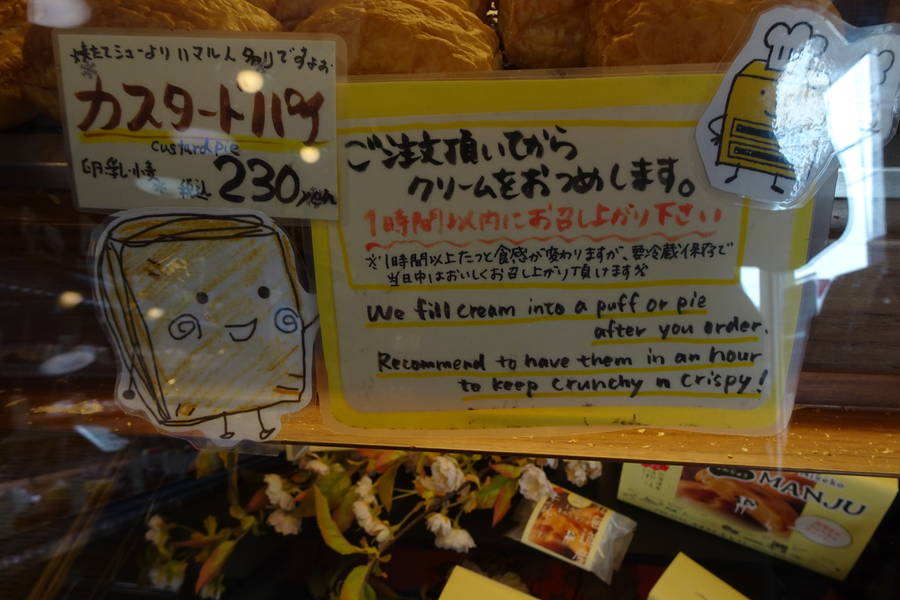 焼たてシューよりハマル人多りですよぉ
カスタードパイ
custard pie
卵・乳・小麦
税込 230yen
ご注文頂いてから
クリームをおつめします。
1時間以内にお召し上がり下さい
※1時間以上たつと食感が変わりますが、要冷蔵保存で
当日中はおいしくお召し上がり頂けます※
We fill cream into a puff or pie
after you order.
Recommend to have them in an hour
to keep crunchy n crispy!
MANJU